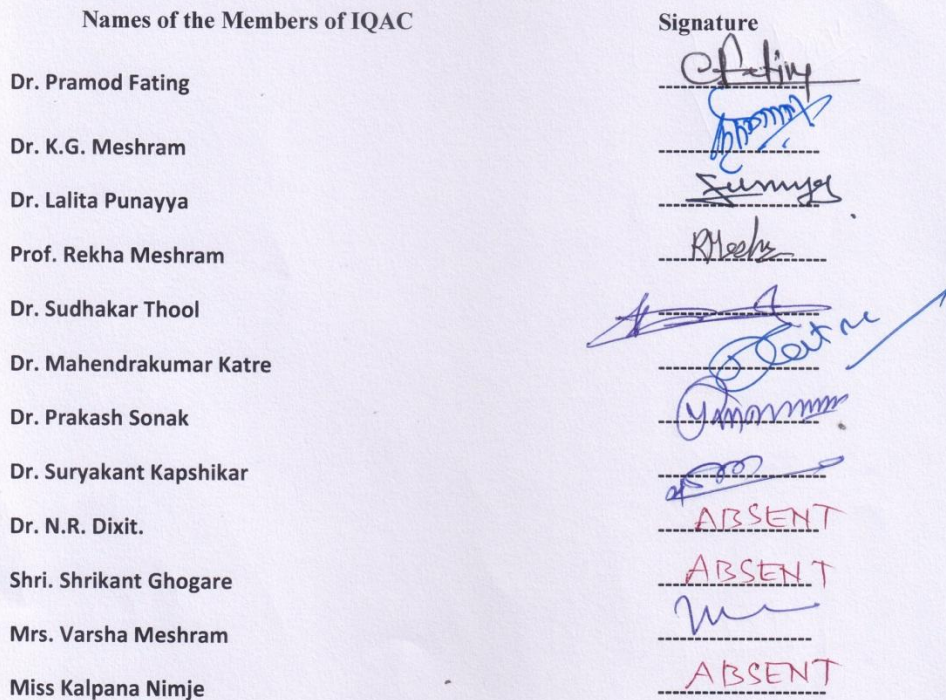 Names of the Members of IQAC Signature
Dr. Pramod Fating
Dr. K.G. Meshram
Dr. Lalita Punayya
Prof. Rekha Meshram RMesh
Dr. Sudhakar Thool
Dr. Mahendrakumar Katre
Dr. Prakash Sonak
Dr. Suryakant Kapshikar
Dr. N.R. Dixit. ABSENT
Shri. Shrikant Ghogare ABSENT
Mrs. Varsha Meshram
Miss Kalpana Nimje ABSENT